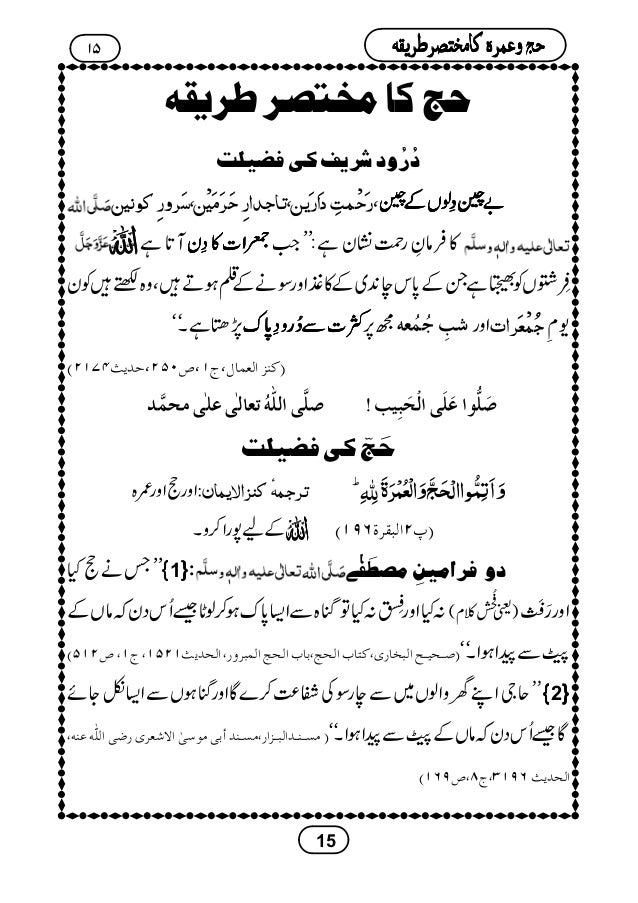 حج و عمرہ کا مختصر طریقہ
۱۵
حج کا مختصر طریقہ
دُرُود شریف کی فضیلت
بے چین دِلوں کے چین، رَحْمتِ دارَین، تاجدارِ حَرَمَیْن، سَرورِ کونین صَلَّی اللہ
تعالٰی علیہ والہٖ وسلَّم کا فرمانِ رحمت نشان ہے: ’’جب جمعرات کا دِن آتا ہے اللہ عَزَّوَجَلَّ
فِرشتوں کو بھیجتا ہے جن کے پاس چاندی کے کاغذ اور سونے کے قلم ہوتے ہیں، وہ لکھتے ہیں کون
یومِ جُمْعَرات اور شبِ جُمُعہ مجھ پر کثرت سے دُرودِ پاک پڑھتا ہے۔‘‘
(کنز العمال، ج۱، ص۲۵۰، حدیث۲۱۷۴)
صَلُّوا عَلَی الْحَبِیب ! صلَّی اللّٰہُ تعالٰی علٰی محمَّد
حَج کی فضیلت
وَ اَتِمُّوا الْحَجَّ وَ الْعُمْرَةَ لِلّٰهِؕ ترجمۂ کنزالایمان: اور حج اور عمرہ
(پ۲ البقرۃ ۱۹۶) اللہ کے لیے پورا کرو۔
دو فرامینِ مصطَفٰے صَلَّی اللہ تعالٰی علیہ والہٖ وسلَّم: {1} ’’جس نے حج کیا
اور رَفَث (یعنی فُحْش کلام) نہ کیا اور فِسق نہ کیا تو گناہ سے ایسا پاک ہو کر لوٹا جیسے اُس دن کہ ماں کے
پیٹ سے پیدا ہوا۔‘‘ (صحیح البخاری، کتاب الحج، باب الحج المبرور، الحدیث۱۵۲۱، ج۱، ص۵۱۲)
{2} ’’حاجی اپنے گھر والوں میں سے چارسو کی شفاعت کرے گا اور گناہوں سے ایسا نکل جائے
گا جیسے اُس دن کہ ماں کے پیٹ سے پیدا ہوا۔‘‘ (مسندالبزار، مسند أبی موسیٰ الاشعری رضی اللہ عنہ،
الحدیث ۳۱۹۶، ج۸، ص۱۶۹)
15